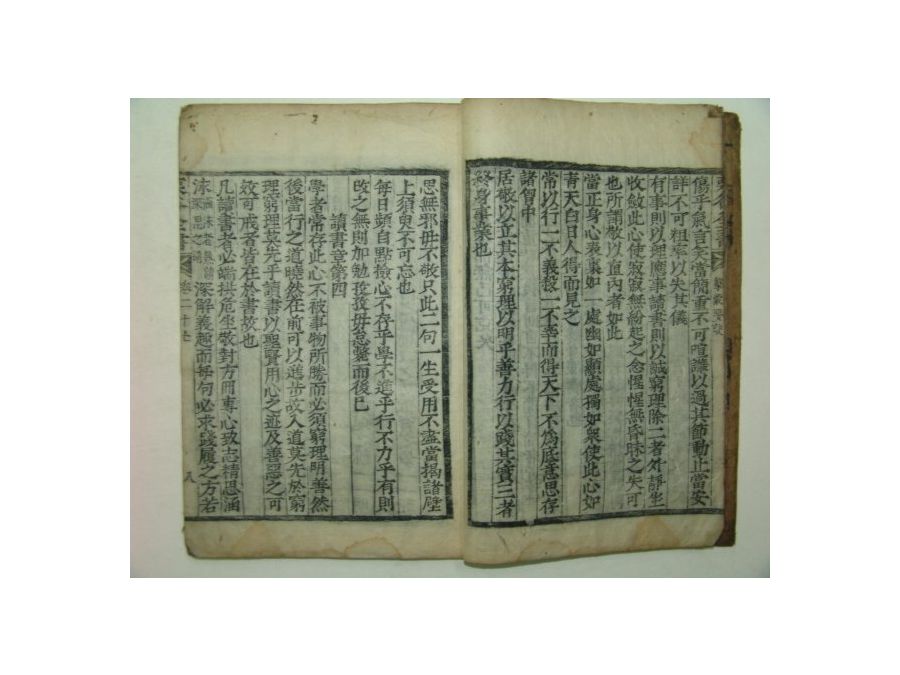 傷乎爲言笑當簡重不可喧譁以過其節動止當安
詳不可粗率以失其儀
有事則以理應事讀書則以誠窮理除二者外靜坐
收斂此心使寂寂無紛起之念惺惺無昏昧之失可
也所謂敬以直內者如此
當正身心表裏如一處幽如顯處獨如衆使此心如
靑天白日人得而見之
常以行一不義殺一不辜而得天下不爲底意思存
諸胷中
居敬以立其本窮理以明乎善力行以踐其實三者
終身事業也
思無邪毋不敬只此二句一生受用不盡當揭諸壁
上須臾不可忘也
每日頻自點檢心不存乎學不進乎行不力乎有則
改之無則加勉孜孜毋怠斃而後已
讀書章第四
學者常存此心不被事物所勝而必須窮理明善然
後當行之道曉然在前可以進步故入道莫先於窮
理窮理莫先乎讀書以聖賢用心之迹及善惡之可
效可戒者皆在於書故也
凡讀書者必端拱危坐敬對方冊專心致志精思涵
泳 深解義趣而每句必求踐履之方若
卷二十七
八